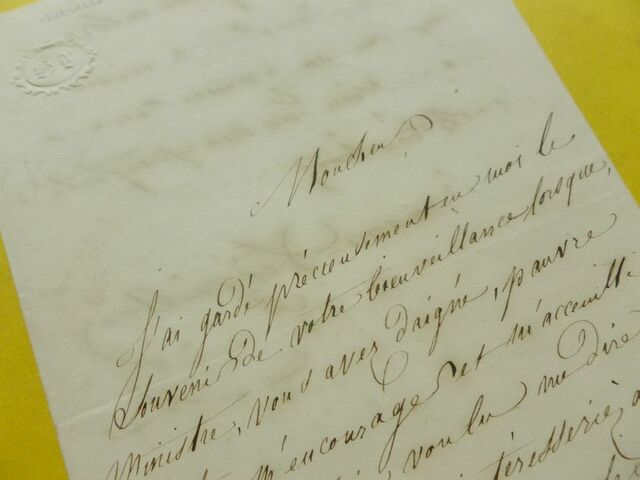 Monsieur
J'ai gardé précieusement en moi le
souvenir de votre bienveillance lorsque,
Ministre, vous avez daigné, pauvre
m'encourager et m'accueilli
voulu me dire